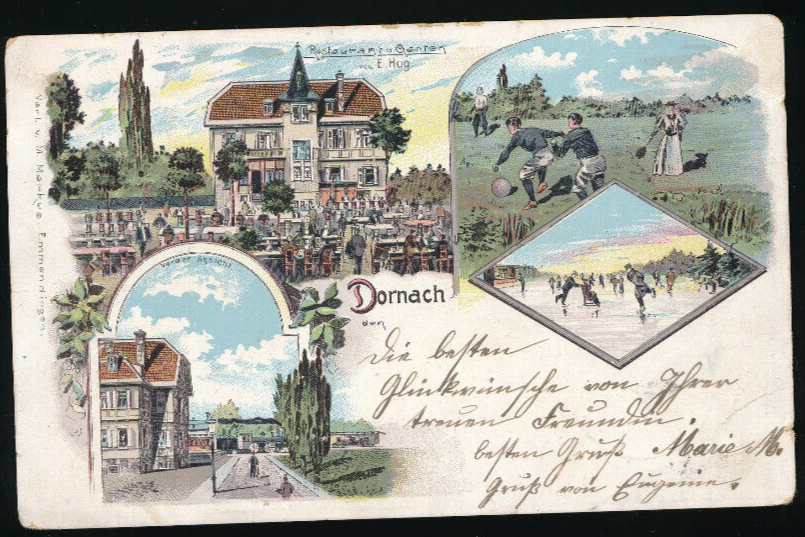 Restaurant u Garten
von E. Hug
Verl. v. M. Markus Emmendingen.
Vorder Ansicht
Dornach
den
Die besten
Glückwünsche von Ihrer
treuen Freundin.
besten Gruß Marie M.
Gruß von Eugenie.